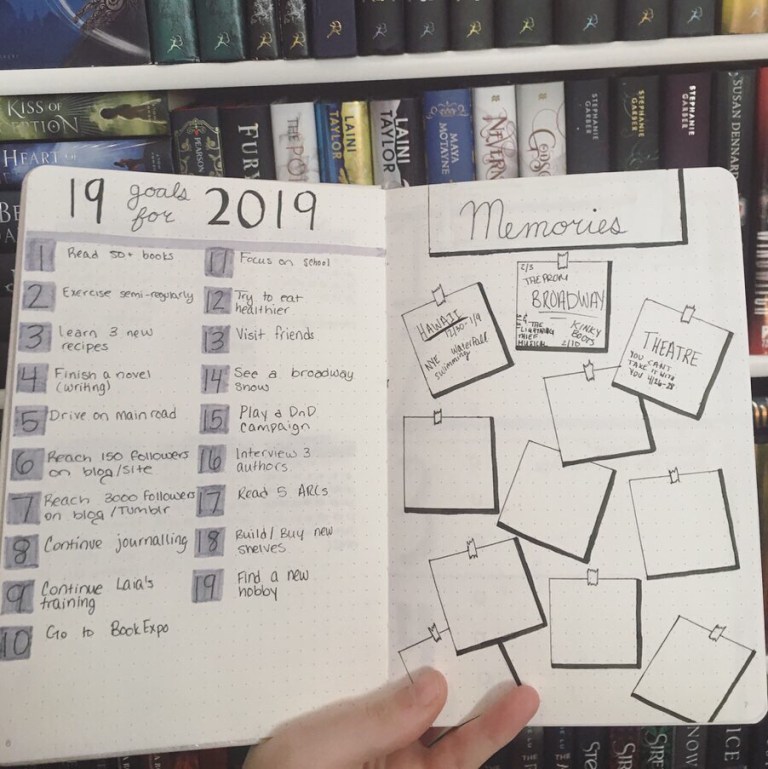 KISS OF
HEART
FURY
LAINI
TAYLOR
LAINI
TAYLOR
MAYA
MOTAYNE
STEPHANIE
GARBER
STEPHANIE
GARBER
STEPHANIE
GARBER
SUSAN DENNARD
19 goals for 2019
1 Read 50+ books
2 Exercise semi-regularly
3 Learn 3 new
recipes
4 Finish a novel
(writing)
5 Drive on main road
6 Reach 150 followers
on blog/site
7 Reach 3000 followers
on blog/Tumblr
8 Continue journalling
9 Continue Laia's
training
10 Go to BookExpo
11 Focus on school
12 Try to eat
healthier
13 Visit friends
14 See a broadway
show
15 Play a DnD
campaign
16 Interview 3
authors
17 Read 5 ARCs
18 Build/Buy new
shelves
19 Find a new
hobby
6
Memories
HAWAII
12/30-1/9
NYE waterfall
swimming
2/3
THE PROM
BROADWAY
& THE
LIGHTNING
THIEF
MUSICAL
KINKY
BOOTS
2/10
THEATRE
YOU CAN'T
TAKE IT WITH
YOU 4/26-28
7